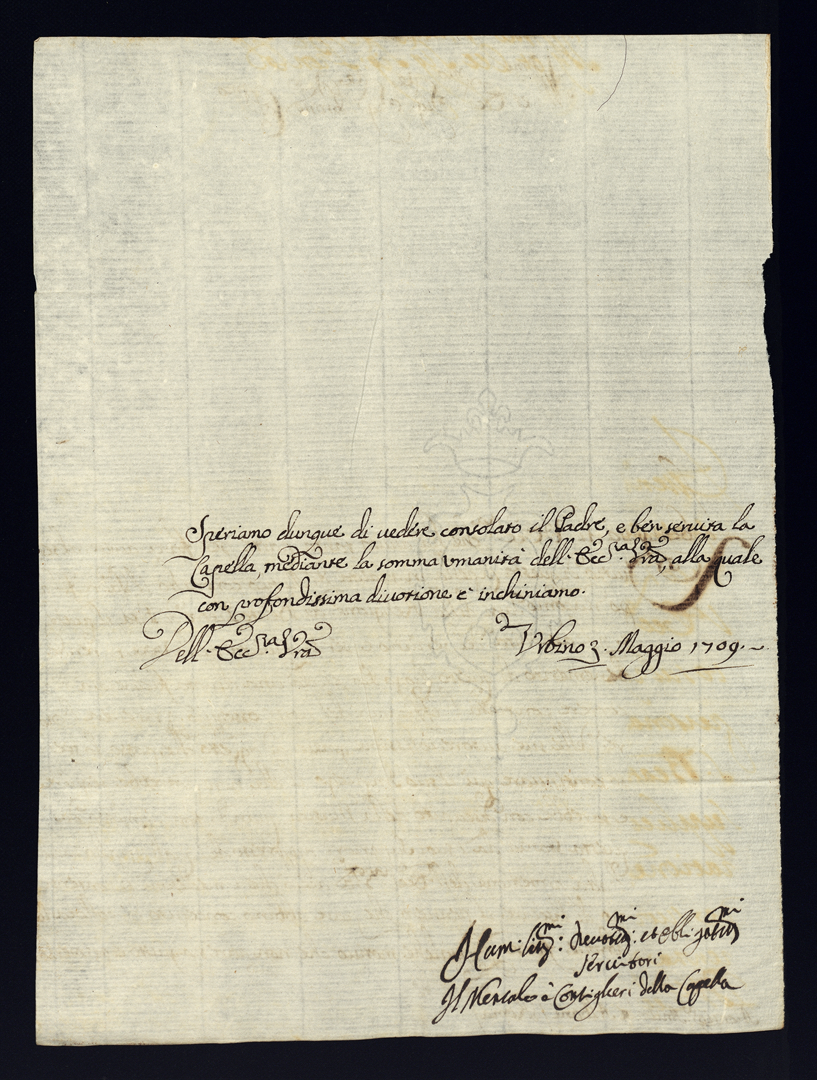 Speriamo dunque di vedere consolato il Padre, e ben servita la
Capella, mediante la somma vmanità dell. Ecc.za Vrã, alla quale
con profondissima divotione c' inchiniamo.
Dell. Ecc.za Vrã
Vrbino 3. Maggio 1709.
Hum.mi Devot.mi et obligat.mi
servitori
Il e Consiglieri della Capella